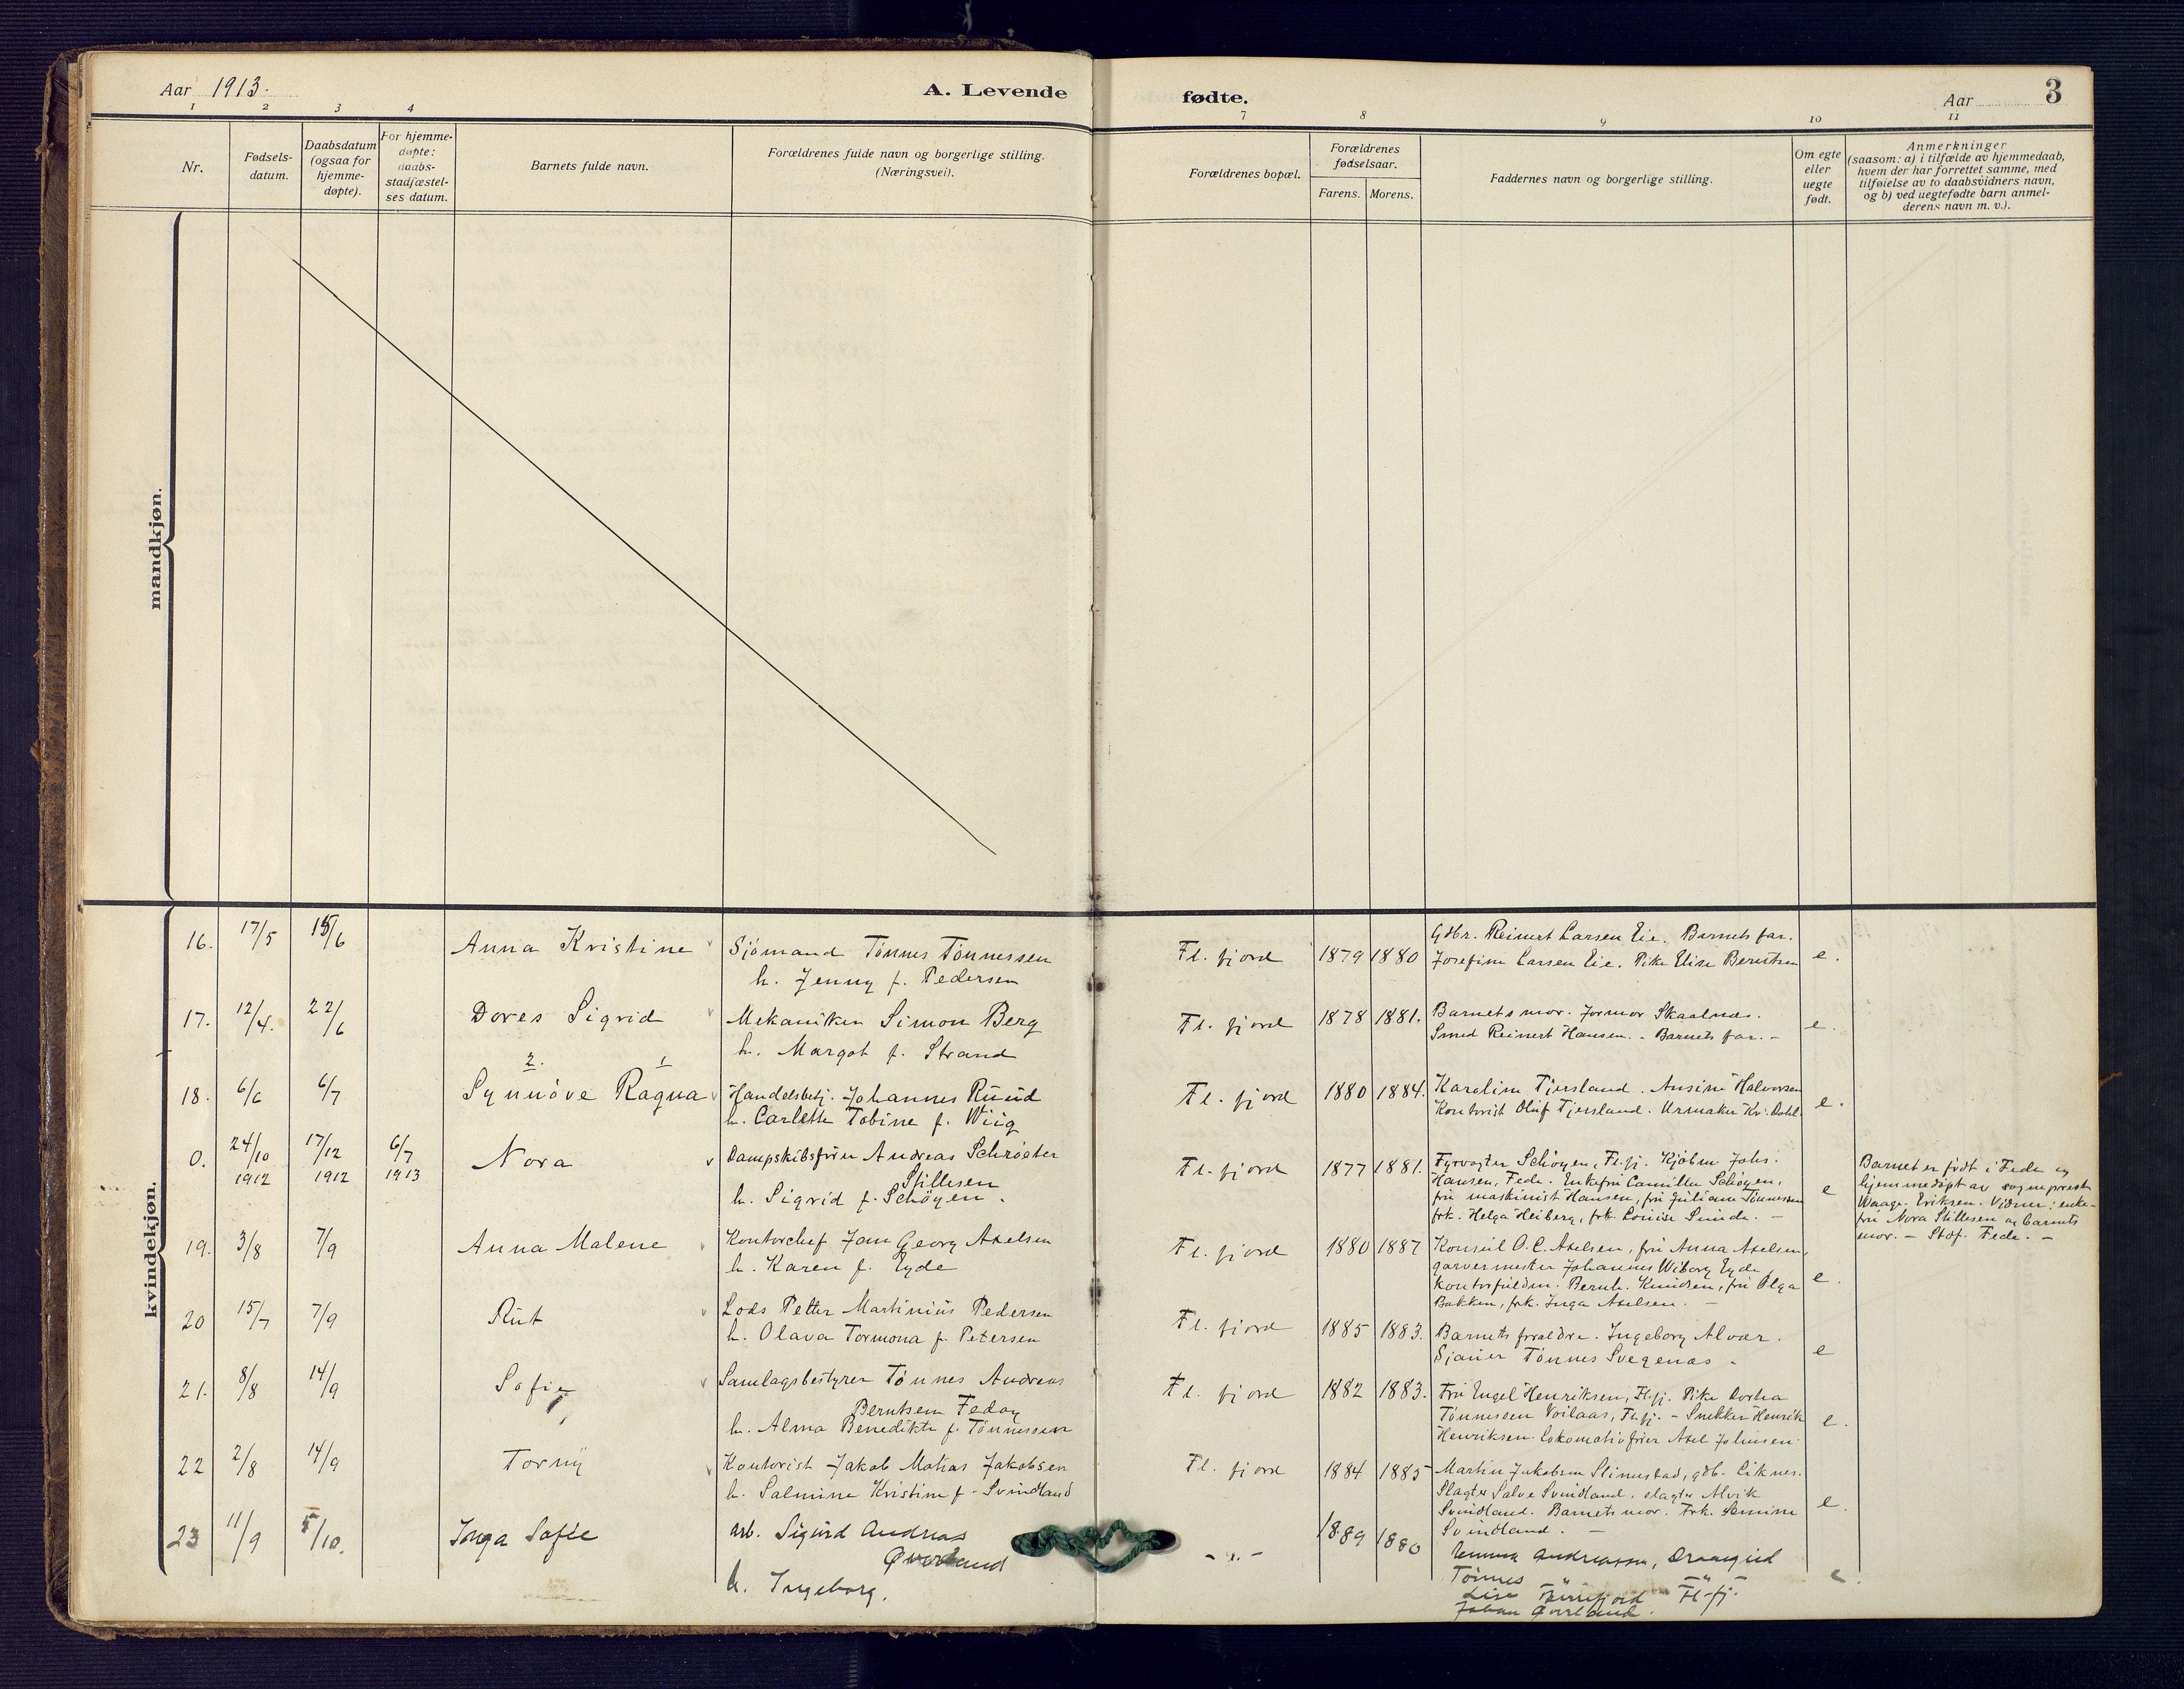 Aar 1913.
A. Levende
fødte.
Aar
3
1 2 3 4
7 8 9 10 11
Nr.
Fødsels-
datum.
Daabsdatum
(ogsaa for
hjemme-
døpte).
For hjemme-
døpte:
daabs-
stadfæstel-
ses datum.
Barnets fulde navn.
Forældrenes fulde navn og borgerlige stilling.
(Næringsvei).
Forældrenes bopæl.
Forældrenes
fødselsaar.
Farens. Morens.
Faddernes navn og borgerlige stilling.
Om egte
eller
uegte
født.
Anmerkninger
(saasom: a) i tilfælde av hjemmedaab,
hvem der har forrettet samme, med
tilføielse av to daabsvidners navn,
og b) ved uegtefødte barn anmel-
derens navn m. v.).
mandkjøn.
kvindekjøn.
16. 17/5 15/6
Anna Kristine
Sjömand Tönnes Tönnessen
h. Jenny f. Pedersen
Fl. fjord 1879 1880
Gdbr. Reinert Larsen Eie. Barnets far.
Josefine Larsen Eie. Pike Elise Berntsen
e.
17. 12/4. 22/6
Dores Sigrid
Mekaniker Simon Berg
h. Margot f. Strand
Fl. fjord 1878 1881.
Barnets mor. Formor Skaalnes.
Smed Reinert Hansen. - Barnets far. -
e.
2. 1
18. 6/6 6/7
Synnöve Ragna
Handelsbetj. Johannes Ruud
h. Carlotte Tobine f. Wiig
Fl. fjord 1880 1884.
Karoline Tjersland. Ansine Halvorsen
Kontorist Oluf Tjersland. Urmaker Kr. Dahl
e.
0. 24/10 1912 17/12 1912 6/7 1913
Nora
Dampskibsfører Andreas Schröeter
Stillesen
h. Sigrid f. Schöyen.
Fl. fjord 1877 1881.
Fyrvogter Schöyen, Fl.fj. Kjöbm Johs.
Hansen, Fede. Enkefru Camilla Schöyen,
fru maskinist Hansen, fru Juliane Tönnessen
frk. Helga Heiberg, frk. Louise Sunde. -
e
Barnet er født i Fede og
hjemmedøpt av sogneprest
Waage Eriksen. Vidner: enke-
fru Nora Stillesen og barnets
mor. - Stdf. Fede. -
19. 3/8 7/9
Anna Malene
Kontorchef Jan Georg Axelsen
h. Karen f. Eyde
Fl. fjord 1880 1887
Konsul O. C. Axelsen, fru Anna Axelsen,
garvermester Johannes Wiborg Eyde,
kontorfuldm. Bernh. Knudsen, fru Olga
Bakken, frk. Inga Axelsen. -
e.
20 15/7 7/9
Rut
Lods Petter Martinius Pedersen
h. Olava Tormona f. Petersen
Fl. fjord 1885 1883.
Barnets forældre. Ingeborg Alvær.
Sjauer Tönnes Svegenæs -
e
21. 8/8 14/9
Sofie
Samlagsbestyrer Tönnes Andreas
Berntsen Feday
h. Alma Benedikte f. Tönnessen
Fl. fjord 1882 1883.
Fru Engel Henriksen, Fl.fj. Pike Dorthea
Tönnessen Voilaas, Fl.fj. - Snekker Henrik
Henriksen. Lokomotivfører Axel Johnsen
e.
22 2/8 14/9
Torny
Kontorist Jakob Matias Jakobsen
h. Salmine Kristine f. Svindland
Fl. fjord 1884 1885
Martin Jakobsen Slimestad, gdb. Liknes.
Slagter Salve Svindland. slagter Alvik
Svindland. Barnets mor. Frk. Semine
Svindland. -
e.
23 11/9 5/10.
Inga Sofie
arb. Sigurd Andreas
Øverland
h. Ingeborg.
- " - 1889 1880
Emma Andreassen, Draageid
Tönnes - " - - " -
Lise Törrisfjord Fl-fj.
Johan Øverland.
e.